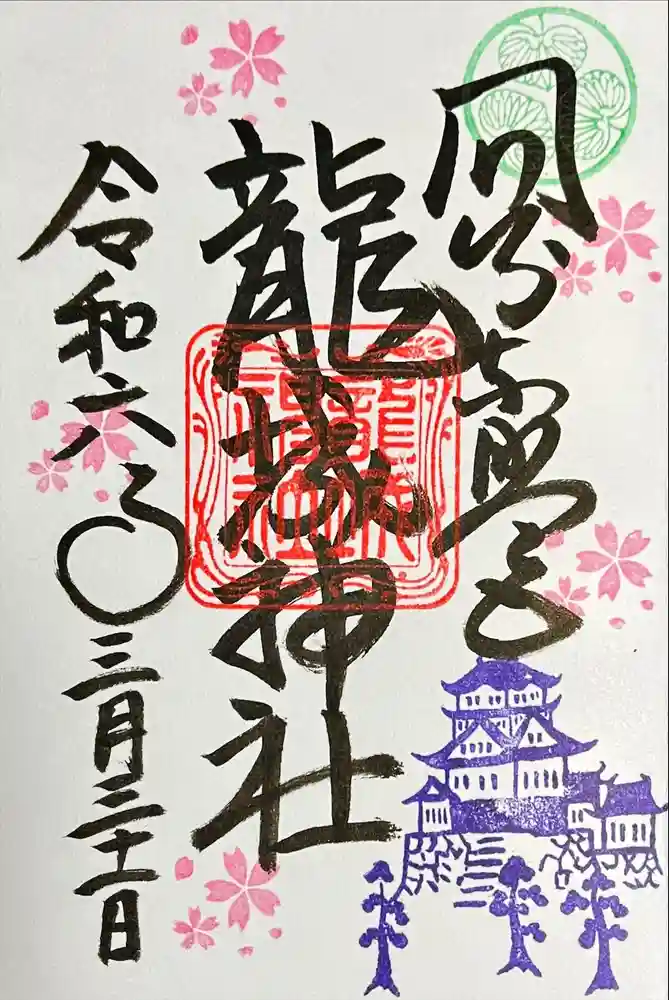 岡崎東照宮
龍城神社
令和六年三月三十一日
龍城神社